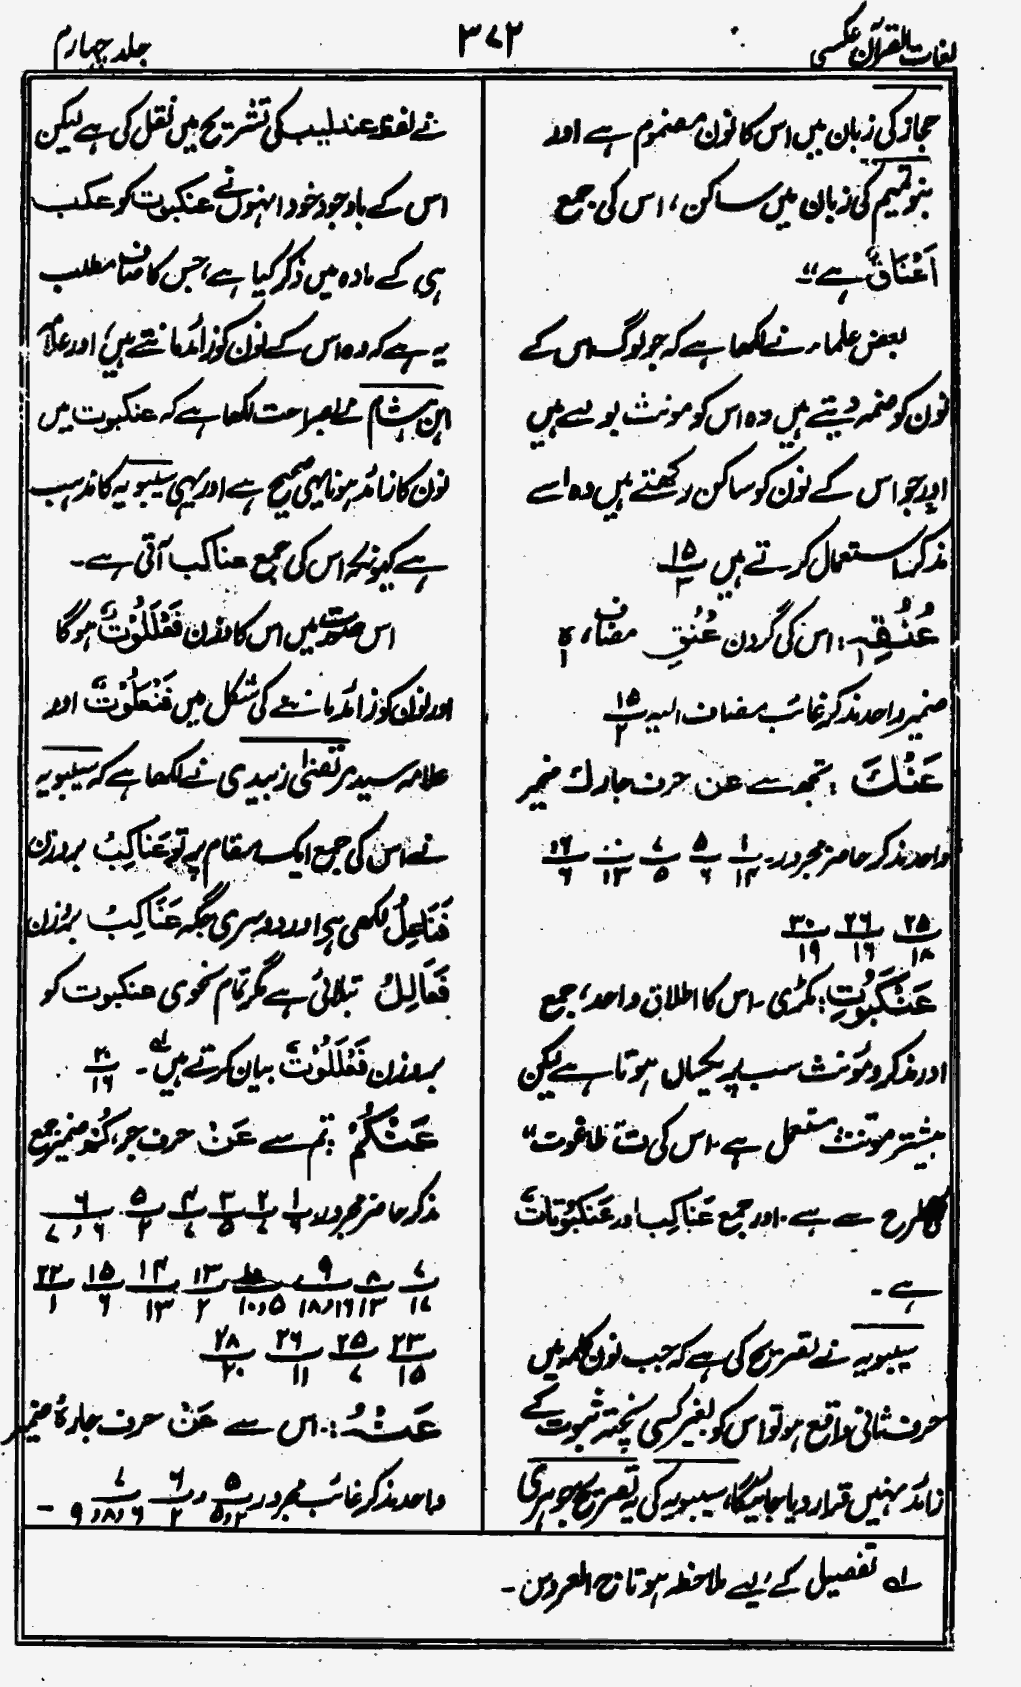 لغات القرآن عکسی
۳۷۲
جلد چہارم
حجاز کی زبان میں اس کا نون مضموم ہے اور
بنو تمیم کی زبان میں ساکن، اس کی جمع
اَعْنَاقٌ ہے"۔
بعض علماء نے لکھا ہے کہ جو لوگ اس کے
نون کو ضمہ دیتے ہیں وہ اس کو مونث بولتے ہیں
اور جو اس کے نون کو ساکن رکھتے ہیں وہ اسے
مذکر استعمال کرتے ہیں ۱۵/۲
عُنُقِہٖ : اس کی گردن عُنُقِ مضاف، ہٖ
ضمیر واحد مذکر غائب مضاف الیہ ۱۵/۲
عَنْكَ : تجھ سے عن حرف جار ك ضمیر
واحد مذکر حاضر مجرور۔ ۱/۱۴ ۵/۶ ۷/۵ ۱۰/۱۳ ۱۶/۶
۲۵/۱۸ ۲۶/۱۶ ۳۰/۱۹
عَنْكَبُوْتِ : مکڑی۔ اس کا اطلاق واحد، جمع
اور مذکر و مؤنث سب پر یکساں ہوتا ہے لیکن
بیشتر مؤنث مستعمل ہے۔ اس کی ت طاغوت"
کی طرح سے ہے۔ اور جمع عَنَاكِب اور عَنْكَبُوْتَاتٌ
ہے۔
سیبویہ نے تصریح کی ہے کہ جب نون کلمہ میں
حرف ثانی واقع ہو تو اس کو بغیر کسی پختہ ثبوت کے
زائد نہیں قرار دیا جائیگا، سیبویہ کی یہ تصریح جوہری
نے لفظ عندلیب کی تشریح میں نقل کی ہے لیکن
اس کے باوجود خود انہوں نے عنکبوت کو عکب
ہی کے مادہ میں ذکر کیا ہے، جس کا صاف مطلب
یہ ہے کہ وہ اس کے نون کو زائد مانتے ہیں، اور علامہ
ابن ہشام نے بصراحت لکھا ہے کہ عنکبوت میں
نون کا زائد ہونا ہی صحیح ہے اور یہی سیبویہ کا مذہب
ہے کیونکہ اس کی جمع عناکب آتی ہے۔
اس صورت میں اس کا وزن فَعْلَلُوْتٌ ہوگا
اور نون کو زائد ماننے کی شکل میں فَنْعَلُوْتٌ اور
علامہ سید مرتضیٰ زبیدی نے لکھا ہے کہ سیبویہ
نے اس کی جمع ایک مقام پر تو عَنَاكِبُ بروزن
فَنَاعِلُ لکھی ہے اور دوسری جگہ عَنَاكِبُ بروزن
فَعَالِلُ بتلائی ہے مگر تمام نحوی عنکبوت کو
بروزن فَعْلَلُوْتٌ بیان کرتے ہیں لہ۔ ۲۰/۱۶
عَنْكُمْ : تم سے عَنْ حرف جر، كُمْ ضمیر جمع
مذکر حاضر مجرور ۱/۶ ۲/۷ ۳/۵ ۴/۷ ۵/۲ ۶/۶ر۷
۷/۱۷ ۸/۱۳ ۹/۱۶ر۱۸ ۱۰ر۵ ۱۳/۲ ۱۴/۱۳ ۱۵/۶ ۲۲/۱
۲۳/۱۵ ۲۵/۷ ۲۶/۱۱ ۲۸/۲۰
عَنْهُ : اس سے عَنْ حرف جار ہُ ضمیر
واحد مذکر غائب مجرور ۵/۲ر۵ و ۶/۲ ۷/۶ر۸ر۹ ۔
لہ تفصیل کے لیے ملاحظہ ہو تاج العروس۔